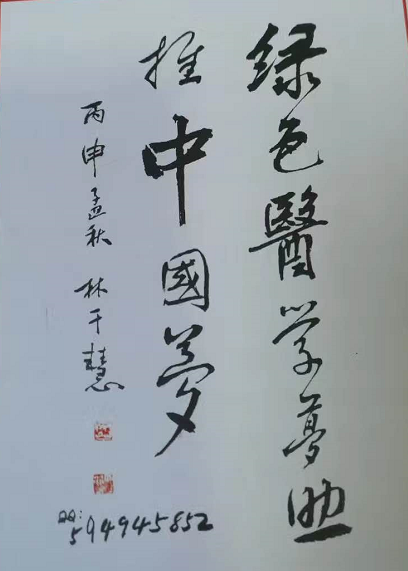 绿色醫学夢助
推中國夢
丙申孟秋 林千慧
QQ:594945852